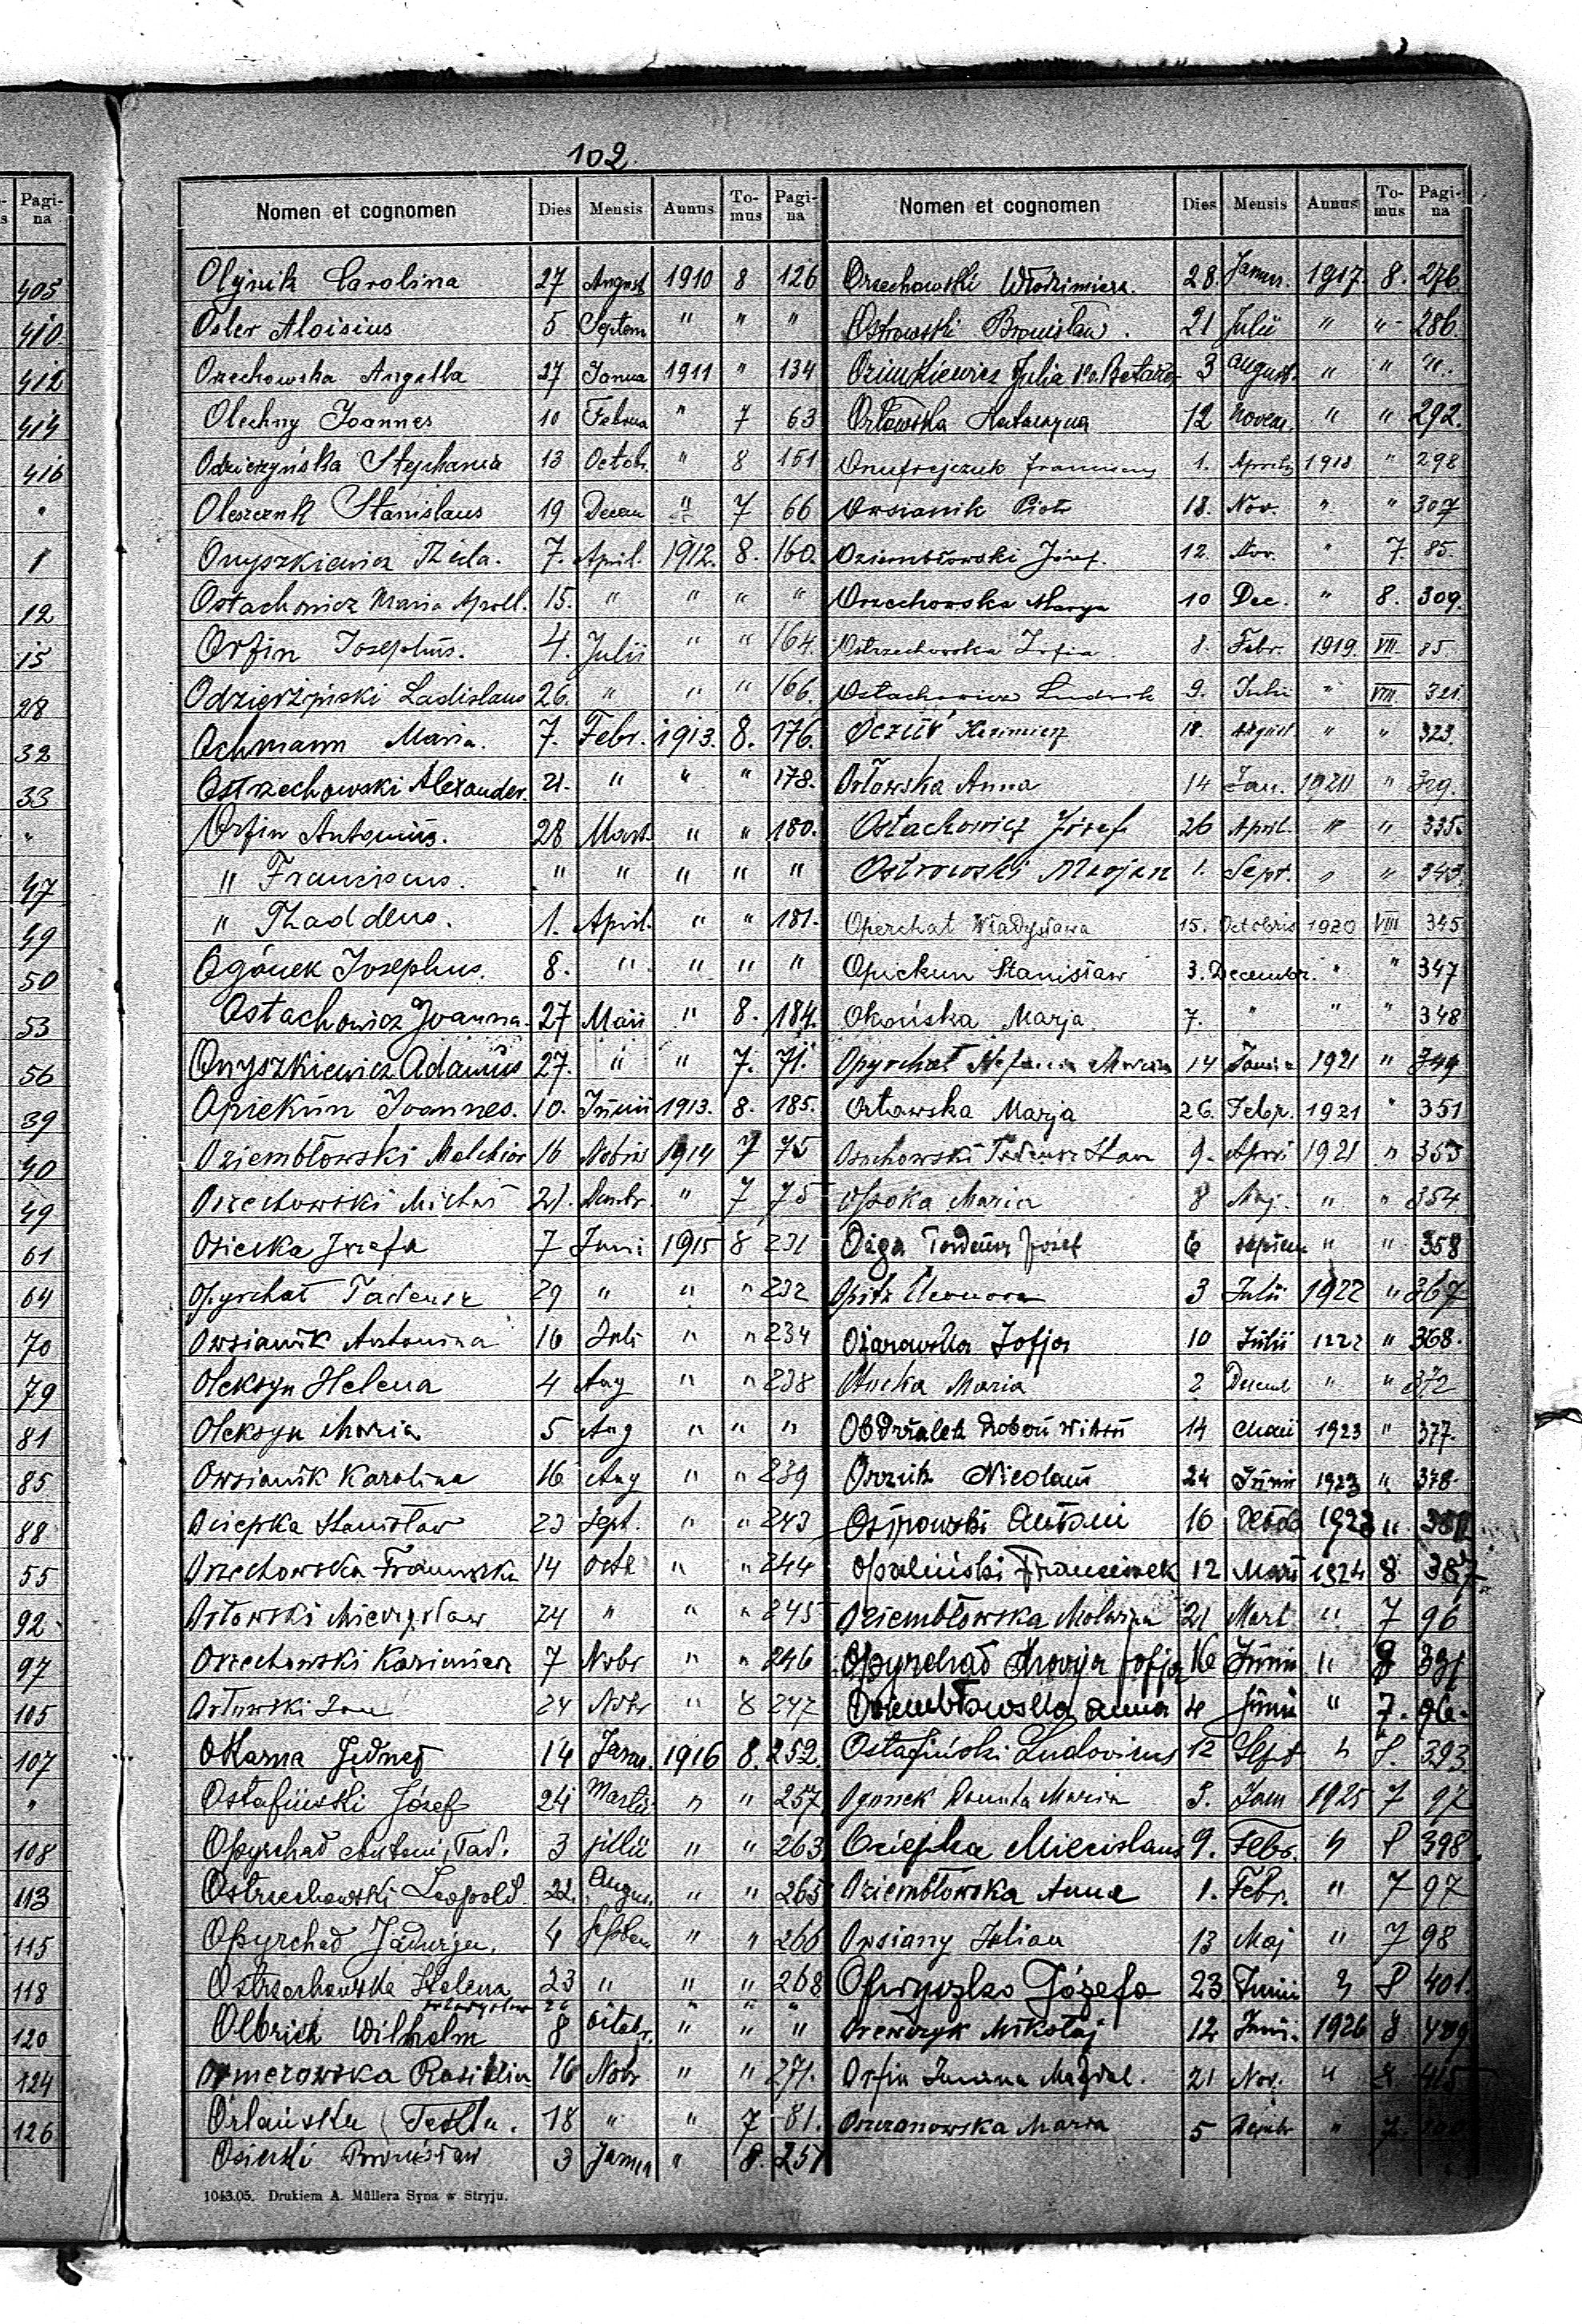 102.
Pagi-na
405
410.
412
414
416
"
1
12
15
28
32
33
"
47
49
50
53
56
39
40
49
61
64
70
79
81
85
88
55
92
97
105
107
"
108
113
115
118
120
124
126
Nomen et cognomen Dies Mensis Annus To-mus Pagi-na
Olýnik Carolina 27 August 1910 8 126
Osler Aloisius 5 Septem " " "
Orzechowska Angella 27 Janua 1911 " 134
Olechny Joannes 10 Februa " 7 63
Odzierzyńska Stephania 13 Octob. " 8 151
Oleszczuk Stanislaus 19 Decem " 7 66
Onyszkiewicz Thecla. 7. April. 1912. 8. 160.
Ostachowicz Maria Apoll. 15. " " " "
Orfin Josephus. 4. Julii " " 164.
Odzierżyński Ladislaus 26. " " " 166.
Ochmann Maria. 7. Febr. 1913. 8. 176.
Ostrzechowski Alexander. 21. " " " 178.
Orfin Antonius. 28 Mart. " " 180.
" Franciscus. " " " " "
" Thaddeus. 1. April. " " 181.
Ogónek Josephus. 8. " " " "
Ostachowicz Joanna. 27 Maii " 8. 184.
Onyszkiewicz Adamus 27. " " 7. 71.
Opiekun Joannes. 10. Junii 1913. 8. 185.
Oziembłowski Melchior 16 Nobris 1914 7 75
Orzechowski Michał 21. " 7 75
Osiecka Józefa 7 Juni 1915 8 231
Opyrchał Tadeusz 29 " " " 232
Owsianik Antonina 16 Juli " " 234
Oleksyn Helena 4 Aug " " 238
Oleksyn Maria 5 Aug " " "
Owsianik Karolina 16 Aug " " 239
Osiepka Stanisław 23 Sept. " " 243
Orzechowska Franciszka 14 Octb " " 244
Orłowski Mieczysław 24 " " " 245
Orzechowski Kazimierz 7 Nobr " " 246
Orłowski Jan 24 Nobr " 8 247
14 Janu. 1916 8. 252.
Ostafiński Józef 24 Martii " " 257
Opyrchad Antoni, Tad. 3 julii " " 263
Ostrzechowski Leopold. 22. Augus. " " 265
Opyrchad Jadwiga. 4 Septem " " 266
Ostrzechowska Helena 23 " " " 268
Władysław 26 " " "
Olbrich Wilhelm 8 Octobr. " " "
16 Nobr " " 271.
18 " " 7 81.
Osiecki Bronisław 3 Janua " 8. 251
1043.05. Drukiem A. Müllera Syna w Stryju.
Nomen et cognomen Dies Mensis Annus To-mus Pagi-na
Orzechowski Włodzimierz. 28. Januar. 1917. 8. 276.
Ostrowski Bronisław. 21 Julii " " 286.
Julia 3 August. " " ".
Orłowska Katarzyna 12 Novem. " " 292.
Onufrejczuk Franciscus 1. Aprilis 1918 " 298
Owsianik Piotr 18. Nov. " " 307
Oziembłowski Józef. 12. Nov. " 7. 85.
Orzechowska Marya 10 Dec. " 8. 309.
Ostrzechowska Zofia. 8. Febr. 1919. VII. 85
Ostachowicz Ludwik 9. Julii " VIII. 321.
Kazimierz 18. August " " 323.
Orłowska Anna 14 Jan. 1920 " 329.
Ostachowicz Józef 26 April. " " 335.
Ostrowski Marjan 1. Sept. " " 343.
Operchat Władysława 15. Octobris 1920 VIII 345
Opiekun Stanisław 3. Decembr. " " 347
Okońska Marja. 7. " " " 348
Opyrchał Stefania 14 Janua 1921 " 349
Orłowska Marja 26. Febr. 1921 " 351
Tadeusz Stan 9. Apri 1921 " 353
Opoka Maria 8 Maj. " " 354
Tadeusz Józef 6 septem " " 358
Opitz Eleonora 3 Julii 1922 " 367
Ożarowska Zofja 10 Julii 1922 " 368.
Maria 2 Decemb " " 372
Obdržalek 14 Maii 1923 " 377.
Nicolaus 24 Junii 1923 " 378.
Antoni 16 1923 "
Opaliński Franciszek 12 Marti 1924 8. 387
Oziembłowska Malwina 21 Mart " 7 96
Opyrchad Marja Zofja 16 Junii " 8 391
Oziembłowska Anna 4 Junii " 7. 96.
Ostafiński Ludovicus 12 Sept " 8. 393
Ogonek Danuta Maria 8. Jan 1925 7 97
Osiepka Miecislaus 9. Febr. " 8 398.
Oziembłowska Anna 1. Febr. " 7 97
Owsiany Julian 13 Maj " 7 98
Józefa 23 Junii " 8 401.
Mikołaj 12 Juni. 1926 8 409
Orfin Janina Magdal. 21 Nov. " 8 415
Maria 5 " 7.